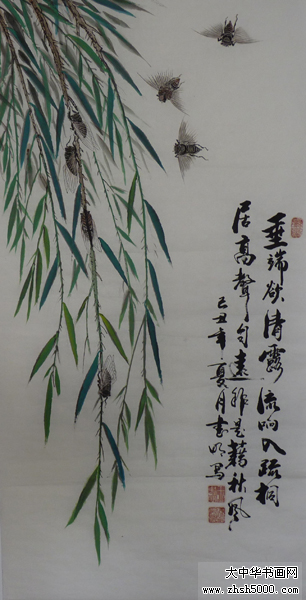 垂端飲清露流响入疏桐
居高聲自遠非是藉秋風
己丑年夏月書明写
大中华书画网
www.zhsh5000.com